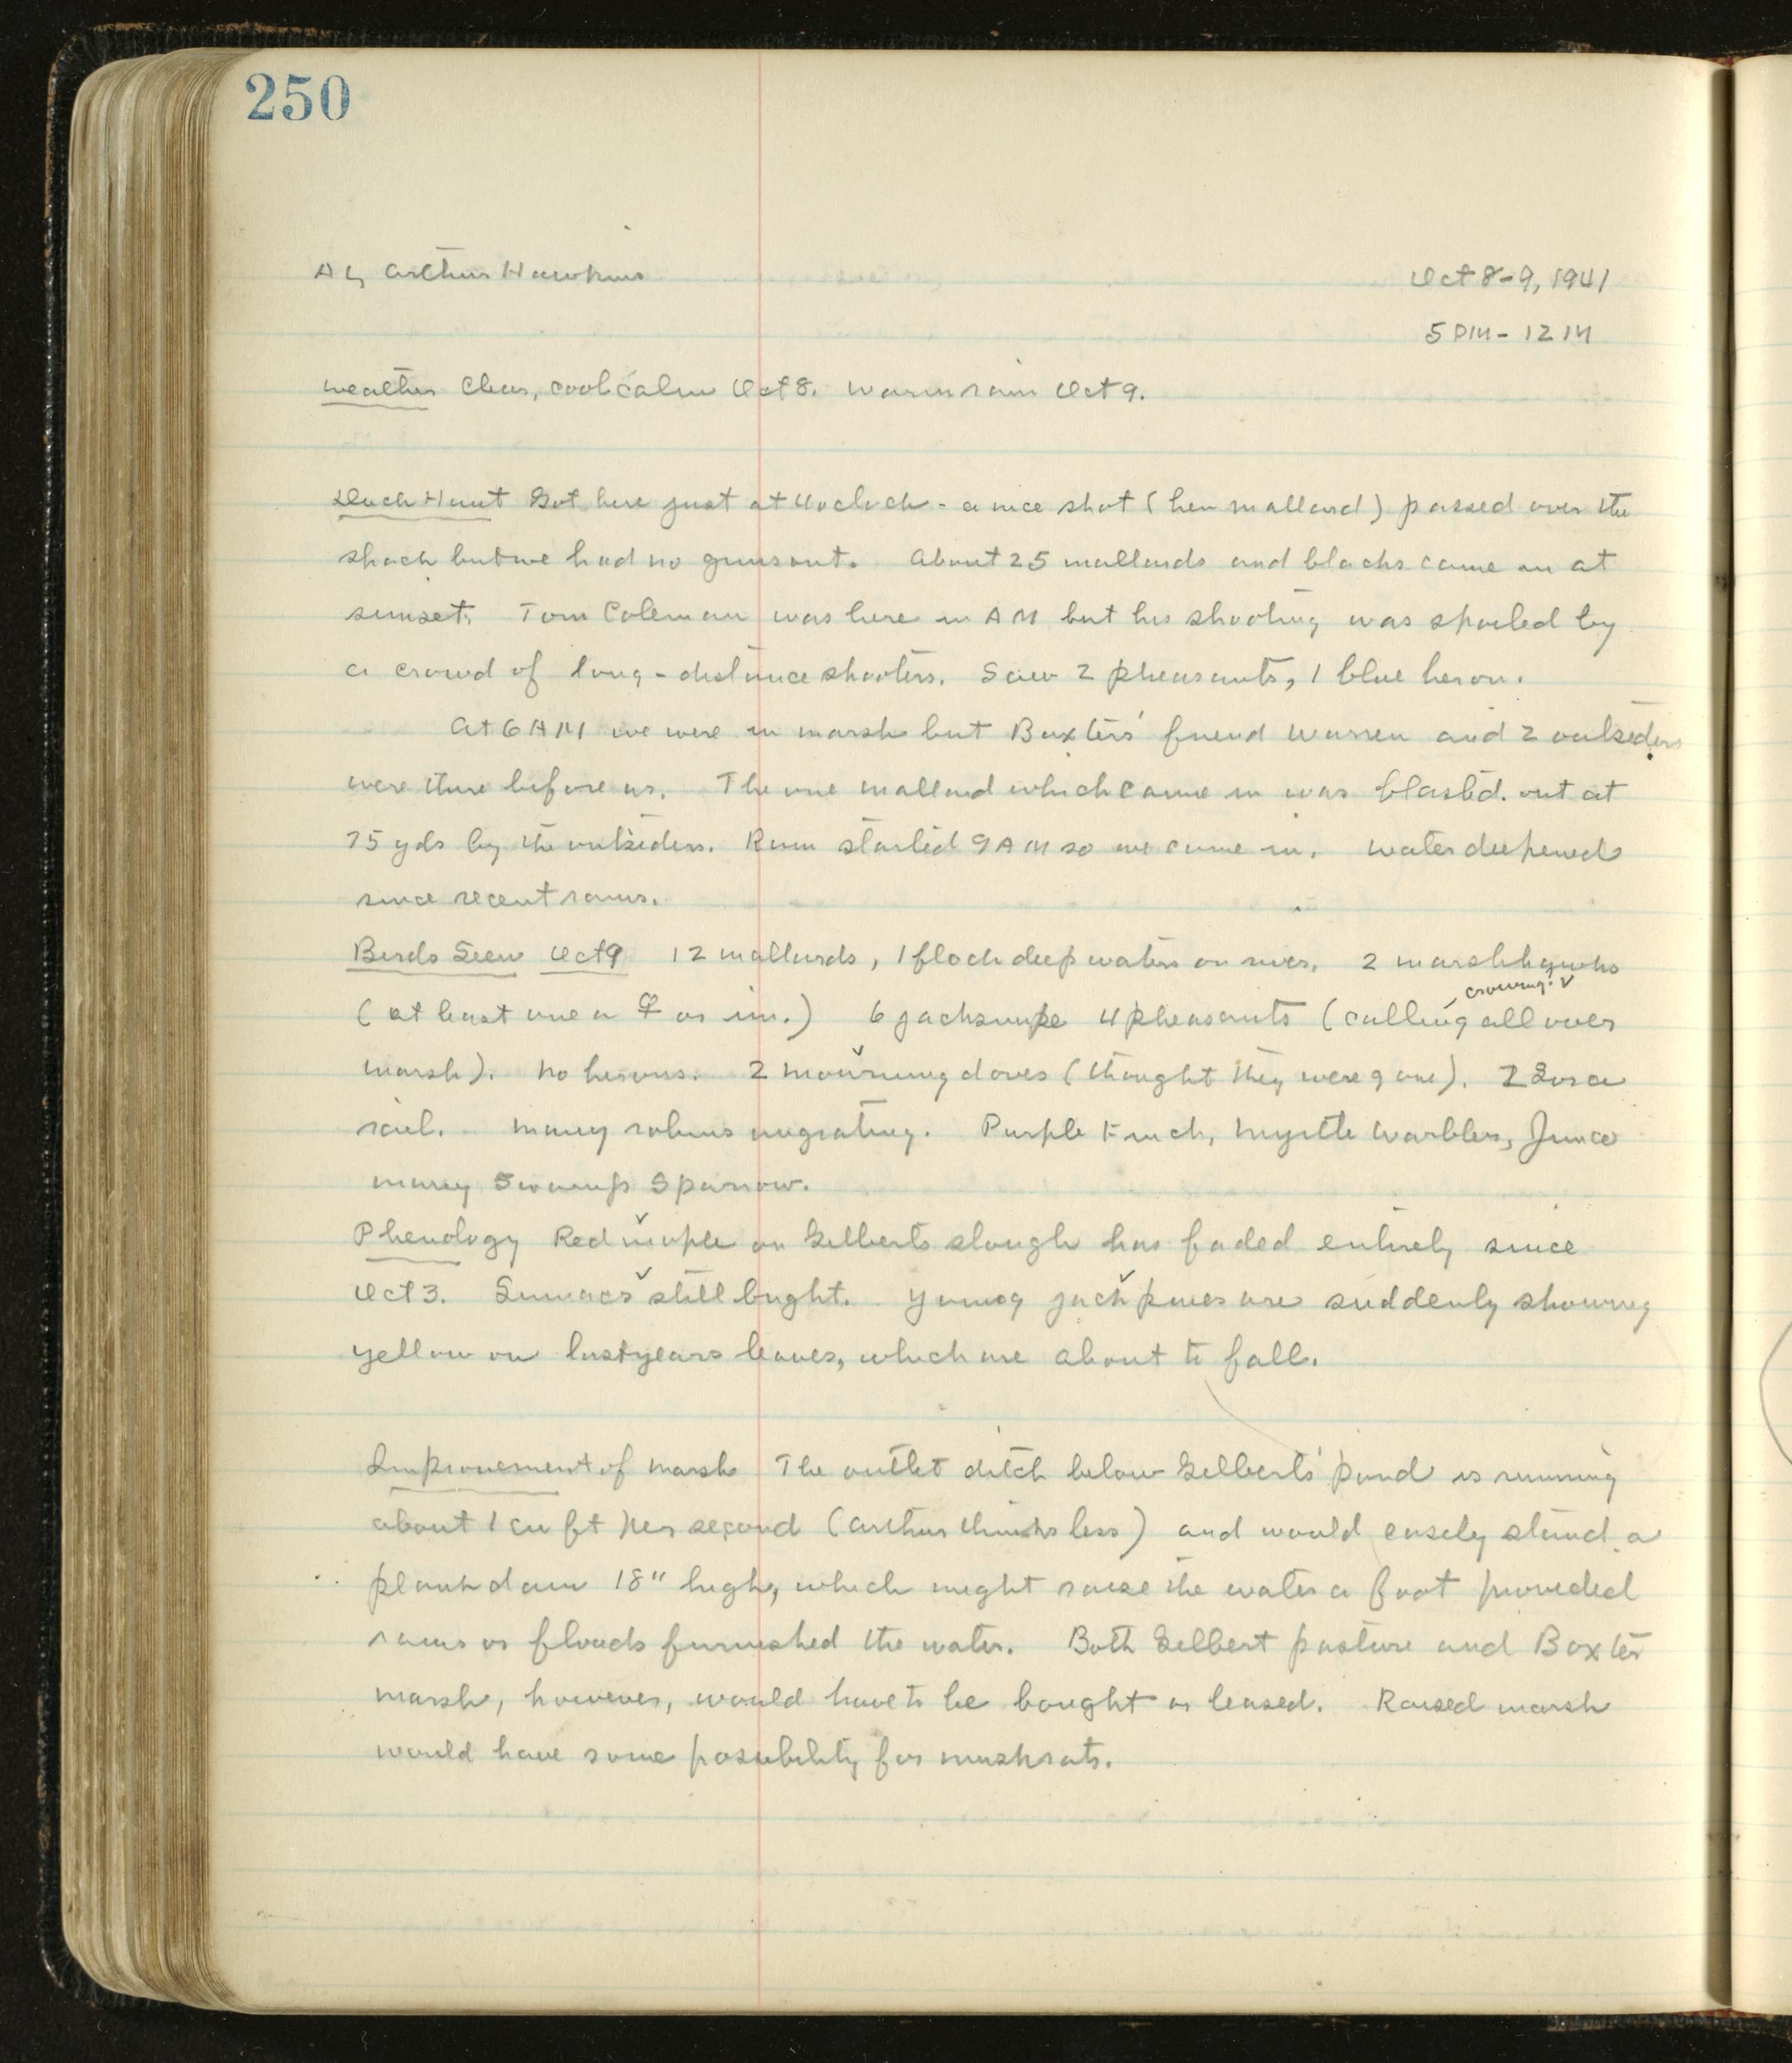 250
AL, Arthur Hawkins
Oct 8-9, 1941
5 PM - 12 M
Weather Clear, cool calm Oct 8. Warm rain Oct 9.
Duck Hunt Got here just at 4 oclock - a nice shot (hen mallard) passed over the
shack but we had no guns out. About 25 mallards and blacks came in at
sunset. Tom Coleman was here in AM but his shooting was spoiled by
a crowd of long-distance shooters. Saw 2 pheasants, 1 blue heron.
At 6 AM we were in marsh but Baxters' friend Warren and 2 outsiders
were there before us. The one mallard which came in was blasted out at
75 yds by the outsiders. Rain started 9 AM so we came in. Water deepened
since recent rains.
Birds Seen Oct 9 12 mallards, 1 flock deep waters on river, 2 marsh hawks
crowing. √
(at least one a ♀ or im.) 6 jacksnipe 4 pheasants (calling all over
marsh). No herons. 2 mourning doves (thought they were gone). 2 Sora
rail. Many robins migrating. Purple Finch, Myrtle Warbler, Junco
many Swamp Sparrow.
Phenology Red maple on Gilberts slough has faded entirely since
Oct 3. Sumacs still bright. Young jackpines are suddenly showing
yellow on last years leaves, which are about to fall.
Improvement of Marsh The outlet ditch below Gilberts' pond is running
about 1 cu ft per second (Arthur thinks less) and would easily stand a
plank dam 18" high, which might raise the water a foot provided
rains or floods furnished the water. Both Gilbert pasture and Baxter
marsh, however, would have to be bought or leased. Raised marsh
would have some possibility for muskrats.